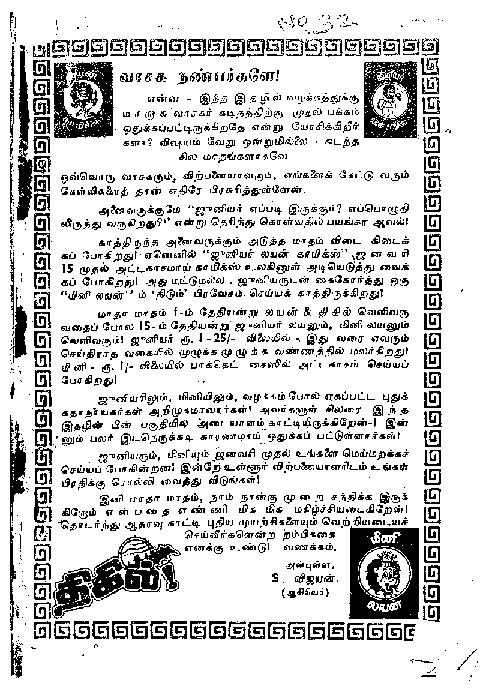 வாசக நண்பர்களே!
என்ன - இந்த இதழில் வழக்கத்துக்கு
மாறாக வாசகர் கடிதத்திற்கு முதல் பக்கம்
ஒதுக்கப்பட்டிருக்கிறதே என்று யோசிக்கிறீர்
களா? விஷயம் வேறு ஒன்றுமில்லை - கடந்த
சில மாதங்களாகவே
ஒவ்வொரு வாசகரும், விற்பனையாளரும், எங்களைக் கேட்டு வரும்
கேள்வியைத் தான் எதிரே பிரசுரித்துள்ளேன்.
அனைவருக்குமே "ஜுனியர் எப்படி இருக்கும்? எப்பொழுதி
லிருந்து வருகிறது?" என்று தெரிந்து கொள்வதில் பயங்கர ஆவல்!
காத்திருந்த அனைவருக்கும் அடுத்த மாதம் விடை கிடைக்
கப் போகிறது! ஏனெனில் "ஜுனியர் லயன் காமிக்ஸ்" ஜனவரி
15 முதல் அட்டகாசமாய் காமிக்ஸ் உலகினுள் அடியெடுத்து வைக்
கப் போகிறது! அது மட்டுமல்ல - ஜுனியருடன் கைகோர்த்து ஒரு
"மினி லயன்" ம் 'திடும்' பிரவேசம் செய்யக் காத்திருக்கிறது!
மாதா மாதம் 1-ம் தேதியன்று லயன் & திகில் வெளிவரு
வதைப் போல 15-ம் தேதியன்று ஜுனியர் லயனும், மினி லயனும்
வெளிவரும்! ஜுனியர் ரூ. 1-25/- விலையில் - இது வரை எவரும்
செய்திராத வகையில் முழுக்க முழுக்க வண்ணத்தில் மலர்கிறது!
மினி - ரூ. 1/- விலையில் பாக்கெட் சைஸில் அட்டகாசம் செய்யப்
போகிறது!
ஜுனியரிலும், மினியிலும், வழக்கம்போல் ஏகப்பட்ட புதுக்
கதாநாயகர்கள் அறிமுகமாவார்கள்! அவர்களுள் சிலரை இந்த
இதழின் பின் பகுதியில் அடையாளம் காட்டியிருக்கிறேன்! இன்
னும் பலர் இடநெருக்கடி காரணமாய் ஒதுக்கப் பட்டுள்ளார்கள்!
ஜுனியரும், மினியும் ஜனவரி முதல் உங்களை மெய்மறக்கச்
செய்யப் போகின்றன! இன்றே உள்ளூர் விற்பனையாளரிடம் உங்கள்
பிரதிக்கு சொல்லி வைத்து விடுங்கள்!
இனி மாதா மாதம், நாம் நான்கு முறை சந்திக்க இருக்
கிறோம் என்பதை எண்ணி மிக மிக மகிழ்ச்சியடைகிறேன்!
தொடர்ந்து ஆதரவு காட்டி புதிய முயற்சிகளையும் வெற்றியடையச்
செய்வீர்களென்ற நம்பிக்கை
எனக்கு உண்டு! வணக்கம்.
அன்புள்ள,
S. விஜயன்.
(ஆசிரியர்)
திகில்!
மினி
லயன்